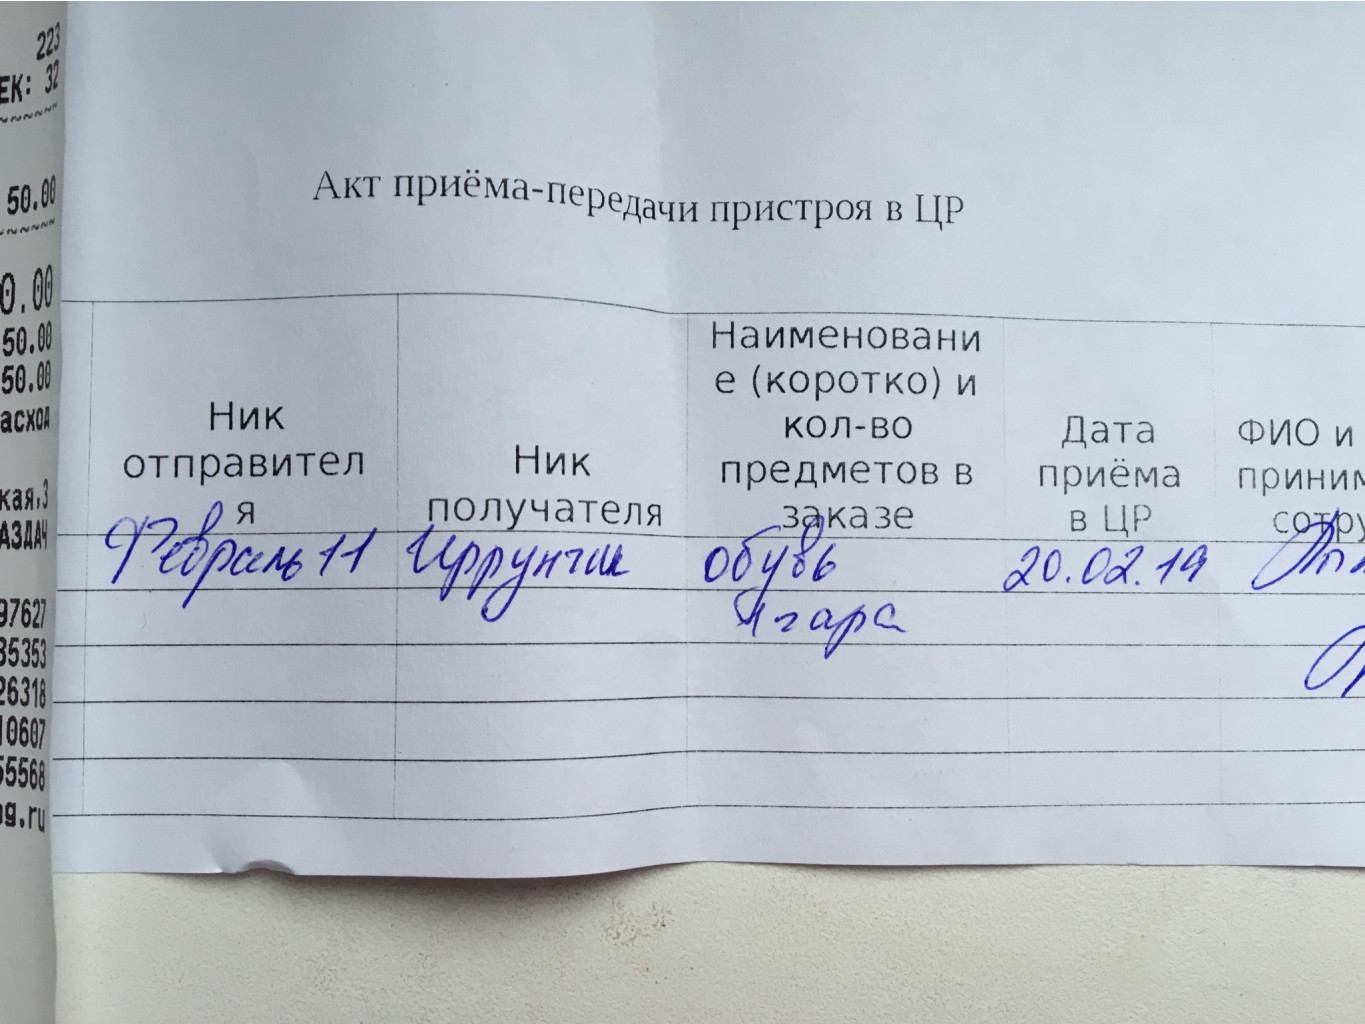 223
ЕК: 32
50.00
0.00
50.00
50.00
асход
кая,3
АЗДАЧ
97627
35353
26318
10607
55568
og.ru
Акт приёма-передачи пристроя в ЦР
Ник
отправител
я
Ник
получателя
Наименовани
е (коротко) и
кол-во
предметов в
заказе
Дата
приёма
в ЦР
ФИО и
приним
сотру
Февраль 11
обувь
20.02.19